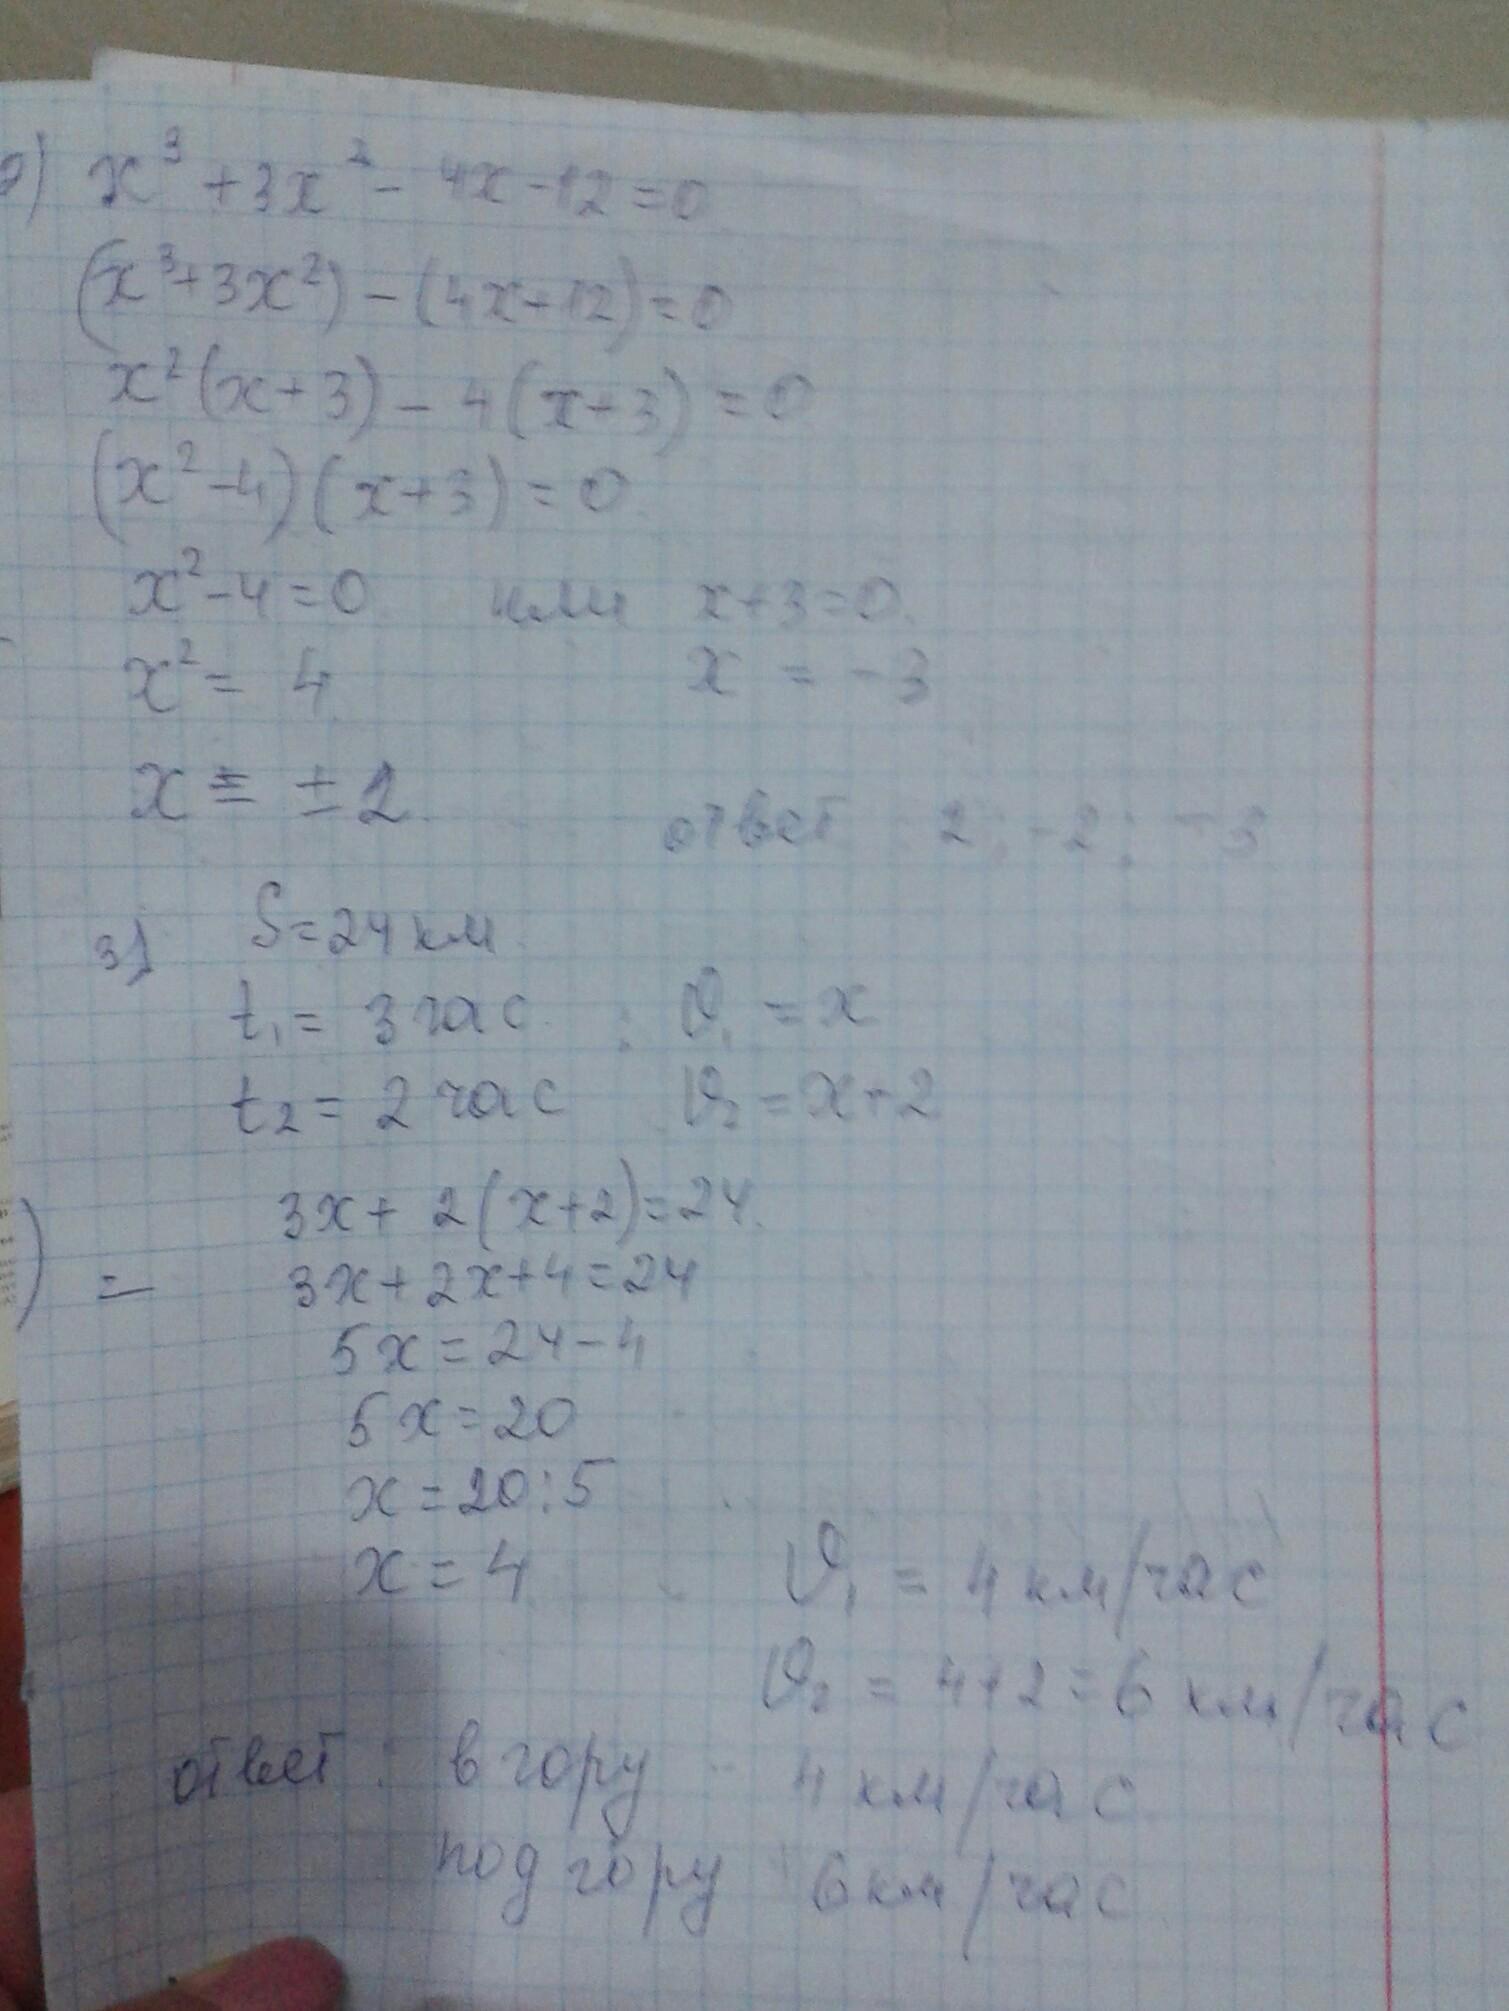 2) x³ + 3x² - 4x - 12 = 0
(x³ + 3x²) - (4x + 12) = 0
x² (x + 3) - 4 (x + 3) = 0
(x² - 4) (x + 3) = 0
x² - 4 = 0 или x + 3 = 0.
x² = 4 x = -3
x = ± 2
ответ : 2 ; -2 ; -3
3) S = 24 км
t₁ = 3 час. ; v₁ = x
t₂ = 2 час v₂ = x + 2
3x + 2 (x + 2) = 24.
) = 3x + 2x + 4 = 24
5x = 24 - 4
5x = 20
x = 20 : 5
x = 4 v₁ = 4 км/час
v₂ = 4 + 2 = 6 км/час
ответ : в гору - 4 км/час
под гору 6 км/час